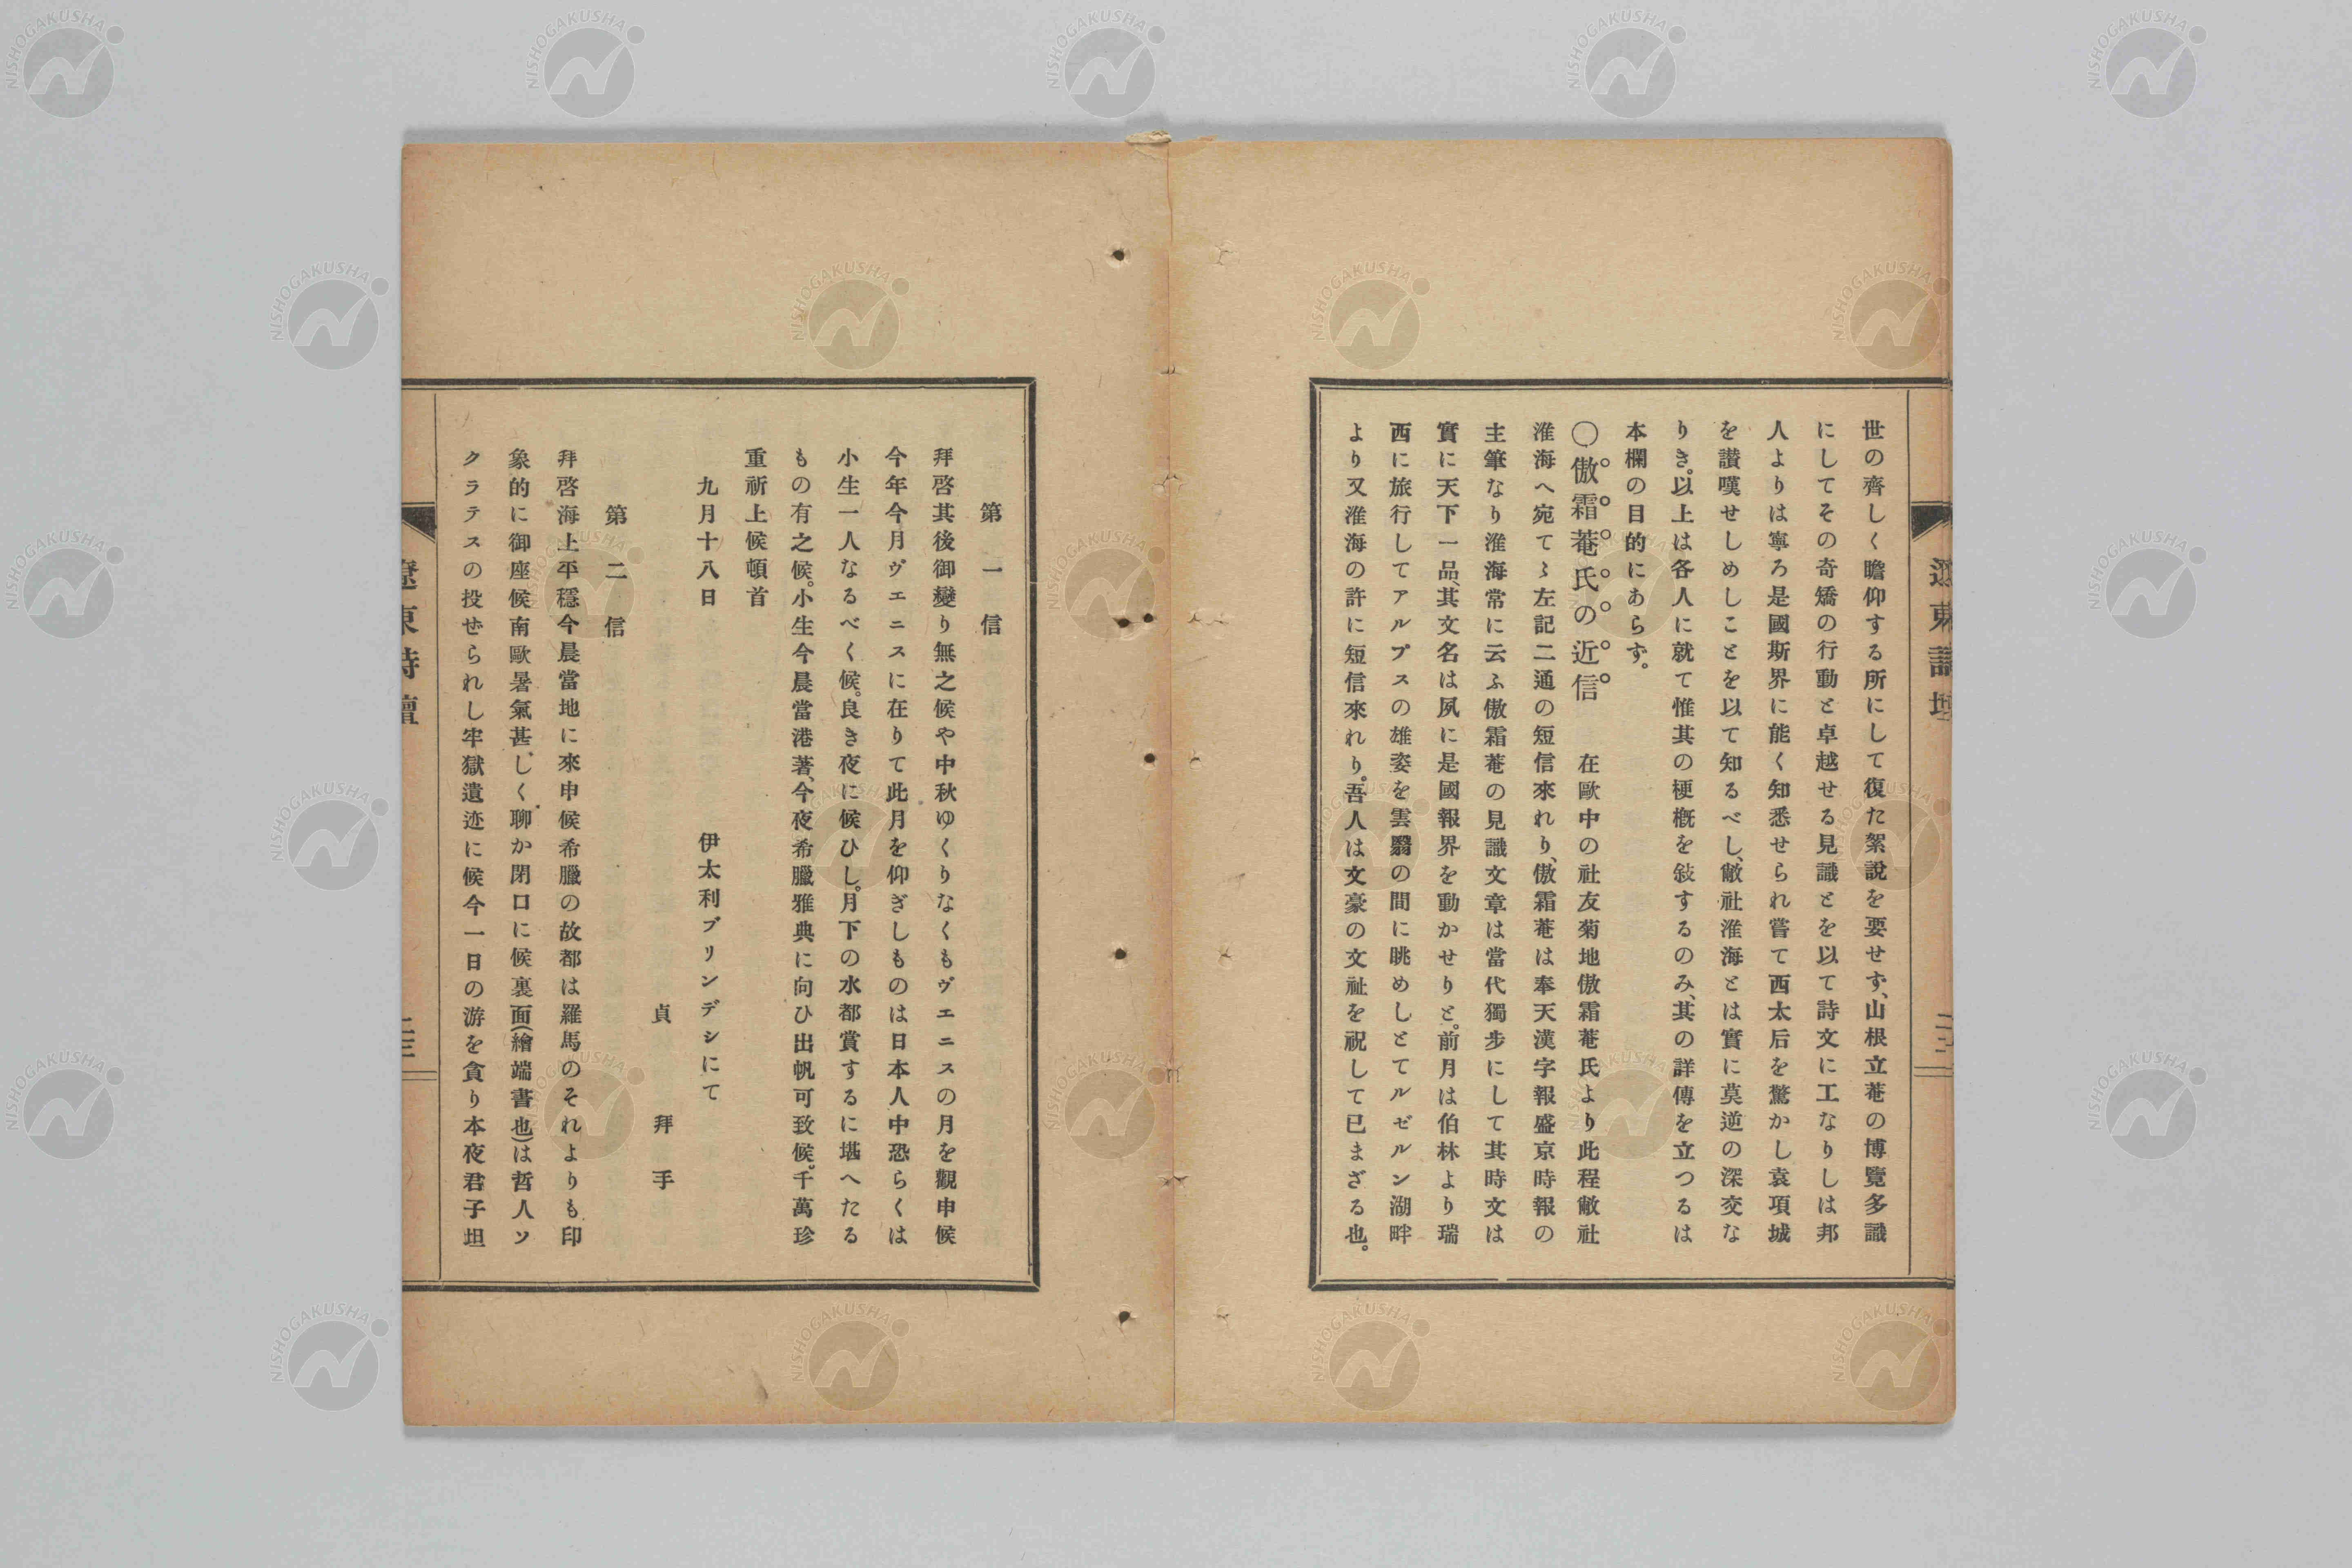 世の齊しく瞻仰する所にして復た絮説を要せず、山根立菴の博覽多識
にしてその奇矯の行動と卓越せる見識とを以て詩文に工なりしは邦
人よりは寧ろ是國斯界に能く知悉せられ嘗て西太后を驚かし袁項城
を讃嘆せしめしことを以て知るべし、敝社淮海とは實に莫逆の深交な
りき。以上は各人に就て惟其の梗概を敍するのみ、其の詳傳を立つるは
本欄の目的にあらず。
〇傲霜菴氏の近信　在歐中の社友菊地傲霜菴氏より此程敝社
淮海へ宛てゝ左記二通の短信來れり、傲霜菴は奉天漢字報盛京時報の
主筆なり淮海常に云ふ傲霜菴の見識文章は當代獨步にして其時文は
實に天下一品、其文名は夙に是國報界を動かせりと。前月は伯林より瑞
西に旅行してアルプスの雄姿を雲翳の間に眺めしとてルゼルン湖畔
より又淮海の許に短信來れり。吾人は文豪の文祉を祝して已まざる也。
遼東詩壇
第一信
拜啓其後御變り無之候や中秋ゆくりなくもヴエニスの月を觀申候
今年今月ヴエニスに在りて此月を仰ぎしものは日本人中恐らくは
小生一人なるべく候。良き夜に候ひし。月下の水都賞するに堪へたる
もの有之候。小生今晨當港著、今夜希臘雅典に向ひ出帆可致候。千萬珍
重祈上候頓首
九月十八日　伊太利ブリンデシにて
貞　拜手
第二信
拜啓海上平穩今晨當地に來申候希臘の故都は羅馬のそれよりも印
象的に御座候南歐暑氣甚しく聊か閉口に候裏面(繪端書也)は哲人ソ
クラテスの投ぜられし牢獄遺迹に候今一日の游を貪り本夜君子坦
遼東詩壇
二三
NISHOGAKUSHA